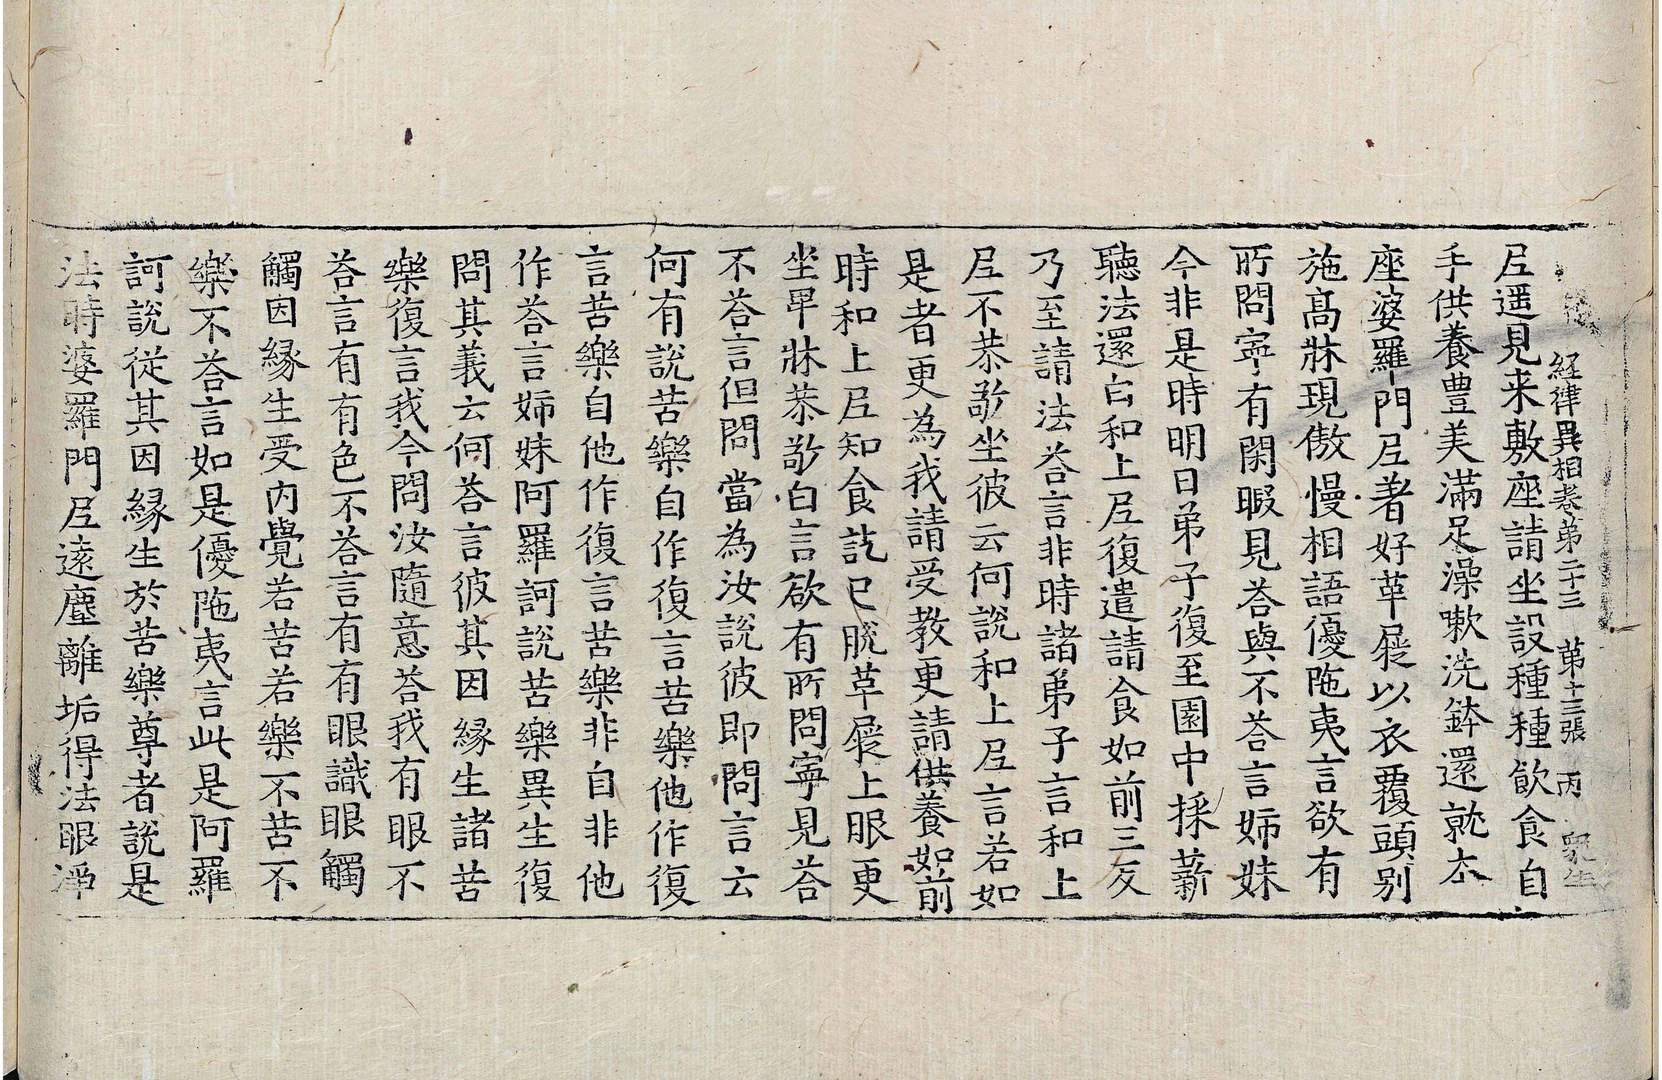 経律異相卷第二十三 第十三張 丙
𡰱遥見来敷座請坐設種種飲食自
手供養豊美滿足澡嗽洗鉢還就大
座婆羅門𡰱著好革屣以衣覆頭别
施髙牀現傲慢相語優陁夷言欲有
所問寕有閑暇見荅與不荅言姉妹
今非是時明日弟子復至園中採薪
聽法還白和上𡰱復遣請食如前三反
乃至請法荅言非時諸弟子言和上
𡰱不恭敬坐彼云何說和上𡰱言若如
是者更為我請受教更請供養如前
時和上𡰱知食訖已脫草屣上服更
坐卑牀恭敬白言欲有所問寕見荅
不荅言但問當為汝說彼即問言云
何有說苦樂自作復言苦樂他作復
言苦樂自他作復言苦樂非自非他
作荅言姉妹阿羅訶說苦樂異生復
問其義云何荅言彼其因縁生諸苦
樂復言我今問汝隨意荅我有眼不
荅言有有色不荅言有有眼識眼觸
觸因縁生受内覺若苦若樂不苦不
樂不荅言如是優陁夷言此是阿羅
訶說從其因縁生於苦樂尊者說是
法時婆羅門𡰱逺塵離垢得法眼淨